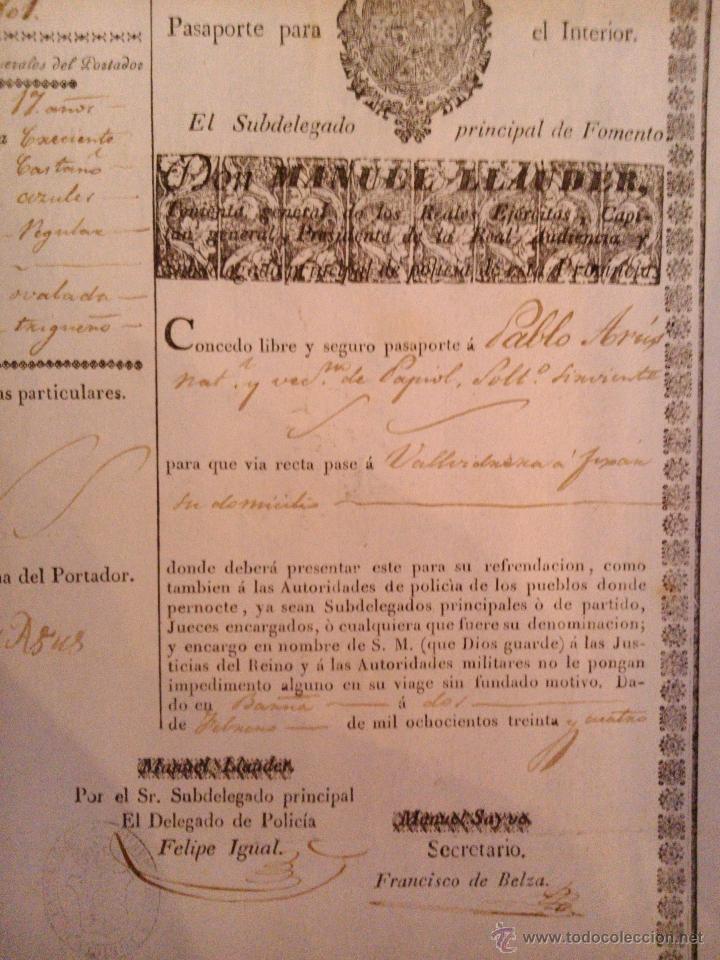 Pasaporte para el Interior.
erales del Portador
17 años
Creciente
Castaño
azules
Regular
ovalada
trigueño
as particulares.
a del Portador.
El Subdelegado principal de Fomento
Don MANUEL LLAUDER,
Teniente general de los Reales Ejércitos, Capi-
tan general, Presidente de la Real Audiencia y
Subdelegado principal de policia de esta Provincia
Concedo libre y seguro pasaporte á Pablo Arús
nat.l y vec.no de Papiol, Solt.o Sirviente
para que via recta pase á Vallvidrera á
su domicilio
donde deberá presentar este para su refrendacion, como
tambien á las Autoridades de policìa de los pueblos donde
pernocte, ya sean Subdelegados principales ò de partido,
Jueces encargados, ò cualquiera que fuere su denominacion;
y encargo en nombre de S. M. (que Dios guarde) á las Jus-
ticias del Reino y á las Autoridades militares no le pongan
impedimento alguno en su viage sin fundado motivo. Da-
do en Barña á dos
de Febrero de mil ochocientos treinta y cuatro
Manuel Llauder
Por el Sr. Subdelegado principal
El Delegado de Policía
Felipe Igual.
Manuel Sayve
Secretario.
Francisco de Belza.
www.todocoleccion.net